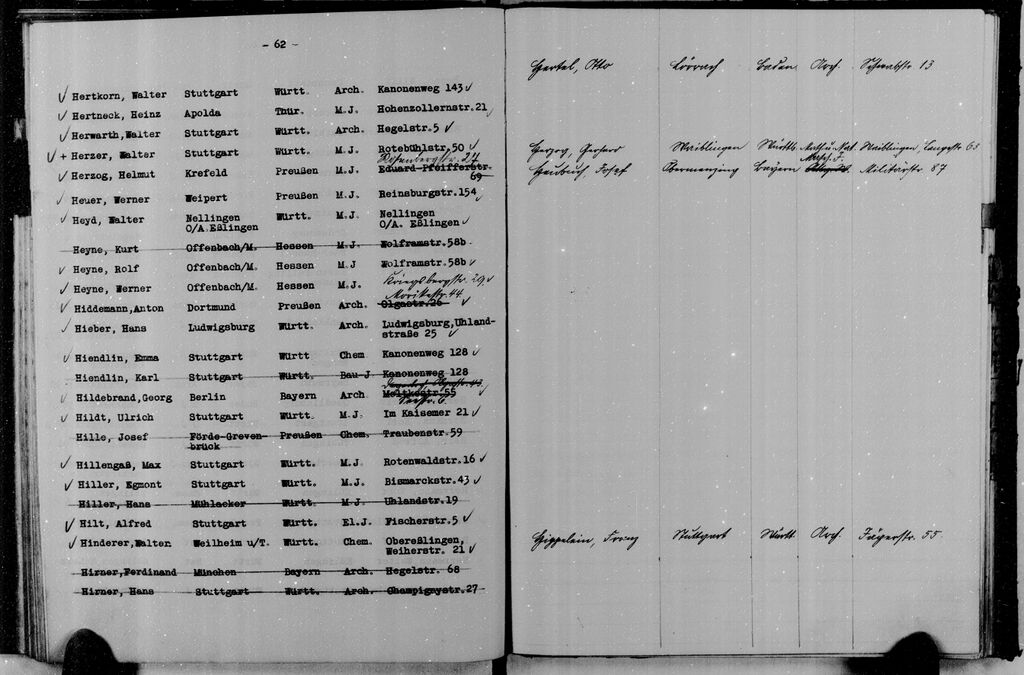 - 62 -
✓ Hertkorn, Walter Stuttgart Württ. Arch. Kanonenweg 143 ✓
✓ Hertneck, Heinz Apolda Thür. M.J. Hohenzollernstr.21
✓ Herwarth,Walter Stuttgart Württ. Arch. Hegelstr.5 ✓
✓ + Herzer, Walter Stuttgart Württ. M.J. Rotebühlstr.50 ✓
Rosenbergstr. 27
✓ Herzog, Helmut Krefeld Preußen M.J. Eduard-Pfeifferstr.
69
✓ Heuer, Werner Weipert Preußen M.J. Reinsburgstr.154
✓ Heyd, Walter Nellingen Württ. M.J. Nellingen
O/A.Eßlingen O/A. Eßlingen ✓
Heyne, Kurt Offenbach/M. Hessen M.J. Wolframstr.58b
✓ Heyne, Rolf Offenbach/M. Hessen M.J Wolframstr.58b ✓
✓ Heyne, Werner Offenbach/M. Hessen M.J. Kriegsbergstr. 29 ✓
Mörikestr. 44
✓ Hiddemann,Anton Dortmund Preußen Arch. Olgastr.26 ✓
✓ Hieber, Hans Ludwigsburg Württ. Arch. Ludwigsburg,Uhland-
straße 25 ✓
✓ Hiendlin, Emma Stuttgart Württ Chem Kanonenweg 128 ✓
Hiendlin, Karl Stuttgart Württ. Bau-J Kanonenweg 128
✓ Hildebrand,Georg Berlin Bayern Arch Moltkestr 55 ✓
✓ Hildt, Ulrich Stuttgart Württ. M.J. Im Kaisemer 21 ✓
Hille, Josef Förde-Greven- Preußen Chem. Traubenstr.59
brück
✓ Hillengaß, Max Stuttgart Württ. M.J Rotenwaldstr.16 ✓
✓ Hiller, Egmont Stuttgart Württ. M.J. Bismarckstr.43 ✓
Hiller, Hans Mühlacker Württ. M.J. Uhlandstr.19
✓ Hilt, Alfred Stuttgart Württ. El.J. Fischerstr.5 ✓
✓ Hinderer,Walten Weilheim u/T. Württ. Chem. Obereßlingen,
Weiherstr. 21 ✓
Hirner,Ferdinand München Bayern Arch. Hegelstr. 68
Hirner, Hans Stuttgart Württ. Arch. Champignystr.27
Hertel, Otto Lörrach Baden Arch. Schwabstr 13
Herzog, Gerhard Waiblingen Württb. Math.u.Nat. Waiblingen, Langestr 65
Masch.J.
Heubuch, Josef Obermenzing Bayern Militärstr 87
Hippelein, Franz Stuttgart Württ. Arch. Jägerstr. 55.